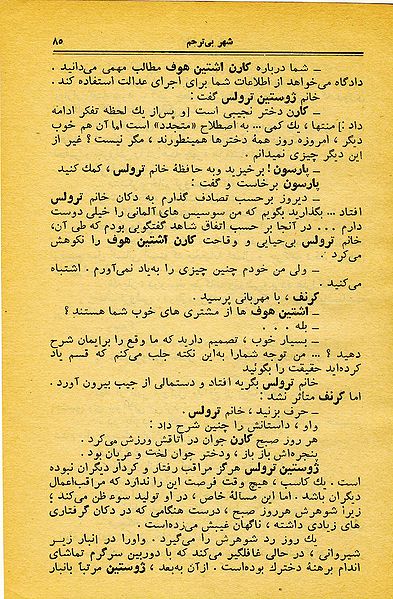 شهر بی‌ترحم ۸۵
ــ شما درباره کارن اشتین هوف مطالب مهمی می‌دانید .
دادگاه می‌خواهد از اطلاعات شما برای اجرای عدالت استفاده کند .
خانم ژوستین ترولس گفت :
ــ کارن دختر نجیبی است [و پس‌از یك لحظه تفکر ادامه
داد :] منتها ، یك کمی ... به اصطلاح «متجدد» است اما آن هم خوب
دیگر ، امروزه روز همهٔ دخترها همینطورند ، مگر نیست ؟ غیر از
این دیگر چیزی نمیدانم .
ــ پارسون ! برخیزید وبه حافظهٔ خانم ترولس ، کمك کنید
پارسون برخاست و گفت :
ــ دیروز برحسب تصادف گذارم به دکان خانم ترولس
افتاد ... بگذارید بگویم که من سوسیس های آلمانی را خیلی دوست
دارم ... در آنجا بر حسب اتفاق شاهد گفتگویی بودم که طی آن،
خانم ترولس بی‌حیایی و وقاحت کارن اشتین هوف را نکوهش
می‌کرد .
ــ ولی من خودم چنین چیزی را به‌یاد نمی‌آورم . اشتباه
می‌کنید .
گرنف ، با مهربانی پرسید .
ــ اشتین هوف ها از مشتری های خوب شما هستند ؟
ــ بله ...
ــ بسیار خوب ، تصمیم دارید که ما وقع را برایمان شرح
دهید ؟ ... من توجه شمارا به‌این نکته جلب می‌کنم که قسم یاد
کرده‌اید حقیقت را بگوئید
خانم ترولس بگریه افتاد و دستمالی از جیب بیرون آورد .
اما گرنف متأثر نشد :
ــ حرف بزنید ، خانم ترولس .
واو ، داستانش را چنین شرح داد :
هر روز صبح کارن جوان در اتاقش ورزش می‌کرد .
پنجره‌اش باز باز ، ودختر جوان لخت و عریان بود .
ژوستین ترولس هرگز مراقب رفتار و کردار دیگران نبوده
است . یك کاسب ، هیچ وقت فرصت این را ندارد که مراقب‌اعمال
دیگران باشد . اما این مسألهٔ خاص ، در او تولید سوءظن می‌کند ؛
زیرا شوهرش هرروز صبح ، درست هنگامی که در دکان گرفتاری
های زیادی داشته ، ناگهان غیبش می‌زده‌است .
یك روز رد شوهرش را می‌گیرد . واورا در انبار زیر
شیروانی ، در حالی غافلگیر می‌کند که با دوربین سرگرم تماشای
اندام برهنهٔ دخترك بوده‌است . ازآن به‌بعد ، ژوستین مرتباً بانبار